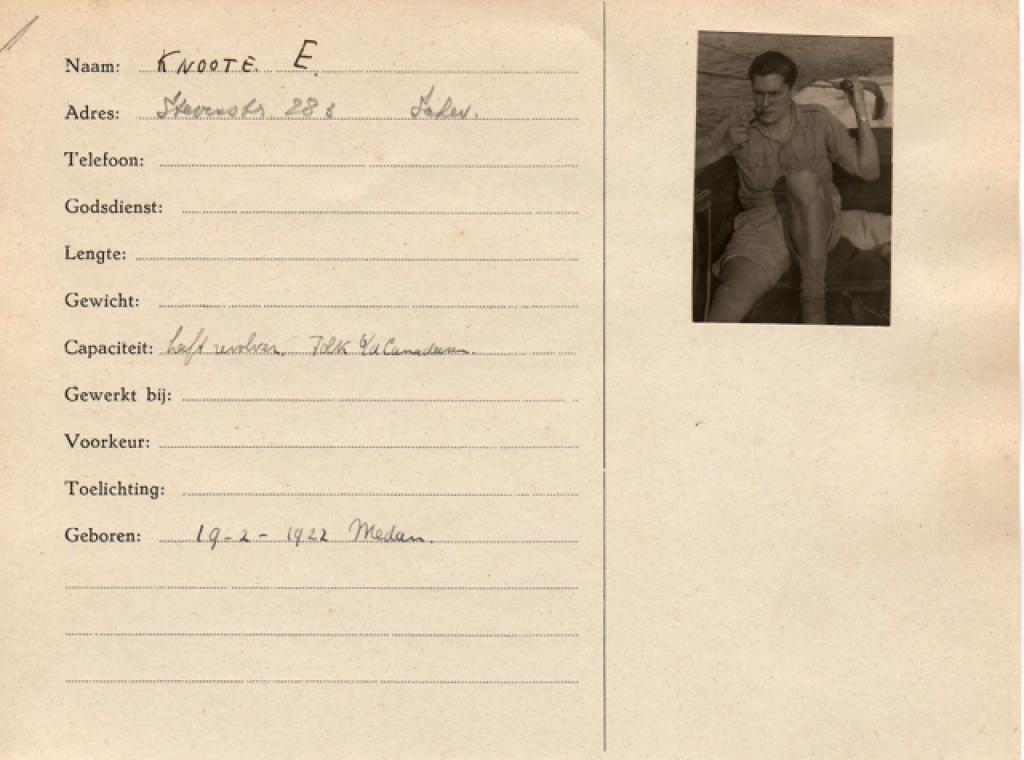 Naam: KNOOTE. E.
Adres: Stevinstr. 283 Schev.
Telefoon:
Godsdienst:
Lengte:
Gewicht:
Capaciteit: heeft revolver. Tolk b/d Canadezen.
Gewerkt bij:
Voorkeur:
Toelichting:
Geboren: 19-2-1922 Medan.